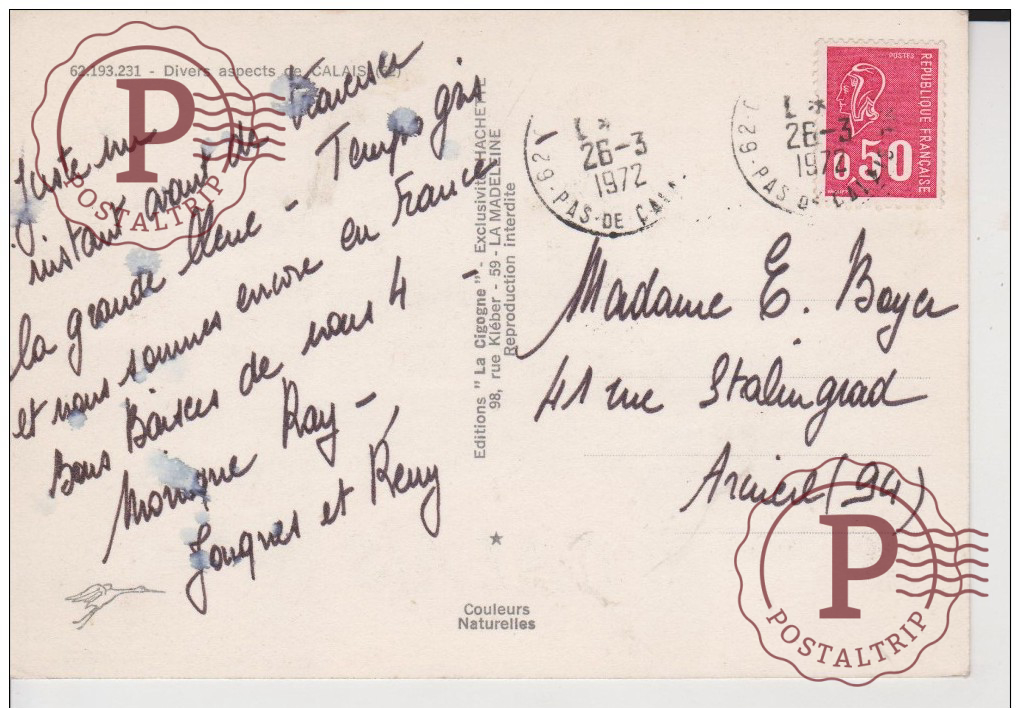 62.193.231 - Divers aspects de CALAIS (62)
Juste un
instant avant de traverser
la grande bleue - Temps gris
et nous sommes encore en France
Bons Baisers de nous 4 -
Monique Ray -
Jacques et Rémy
Editions "La Cigogne" - Exclusivité HACHETTE
98, rue Kléber - 59 - LA MADELEINE
Reproduction interdite
Couleurs
Naturelles
L*
26-3
1972
62-PAS-DE CALAIS
L*
26-3
1972
62-PAS DE CALAIS
POSTES
REPUBLIQUE FRANÇAISE
0,50
Madame E. Boyer
41 rue Stalingrad
(94)
P
POSTALTRIP
P
POSTALTRIP